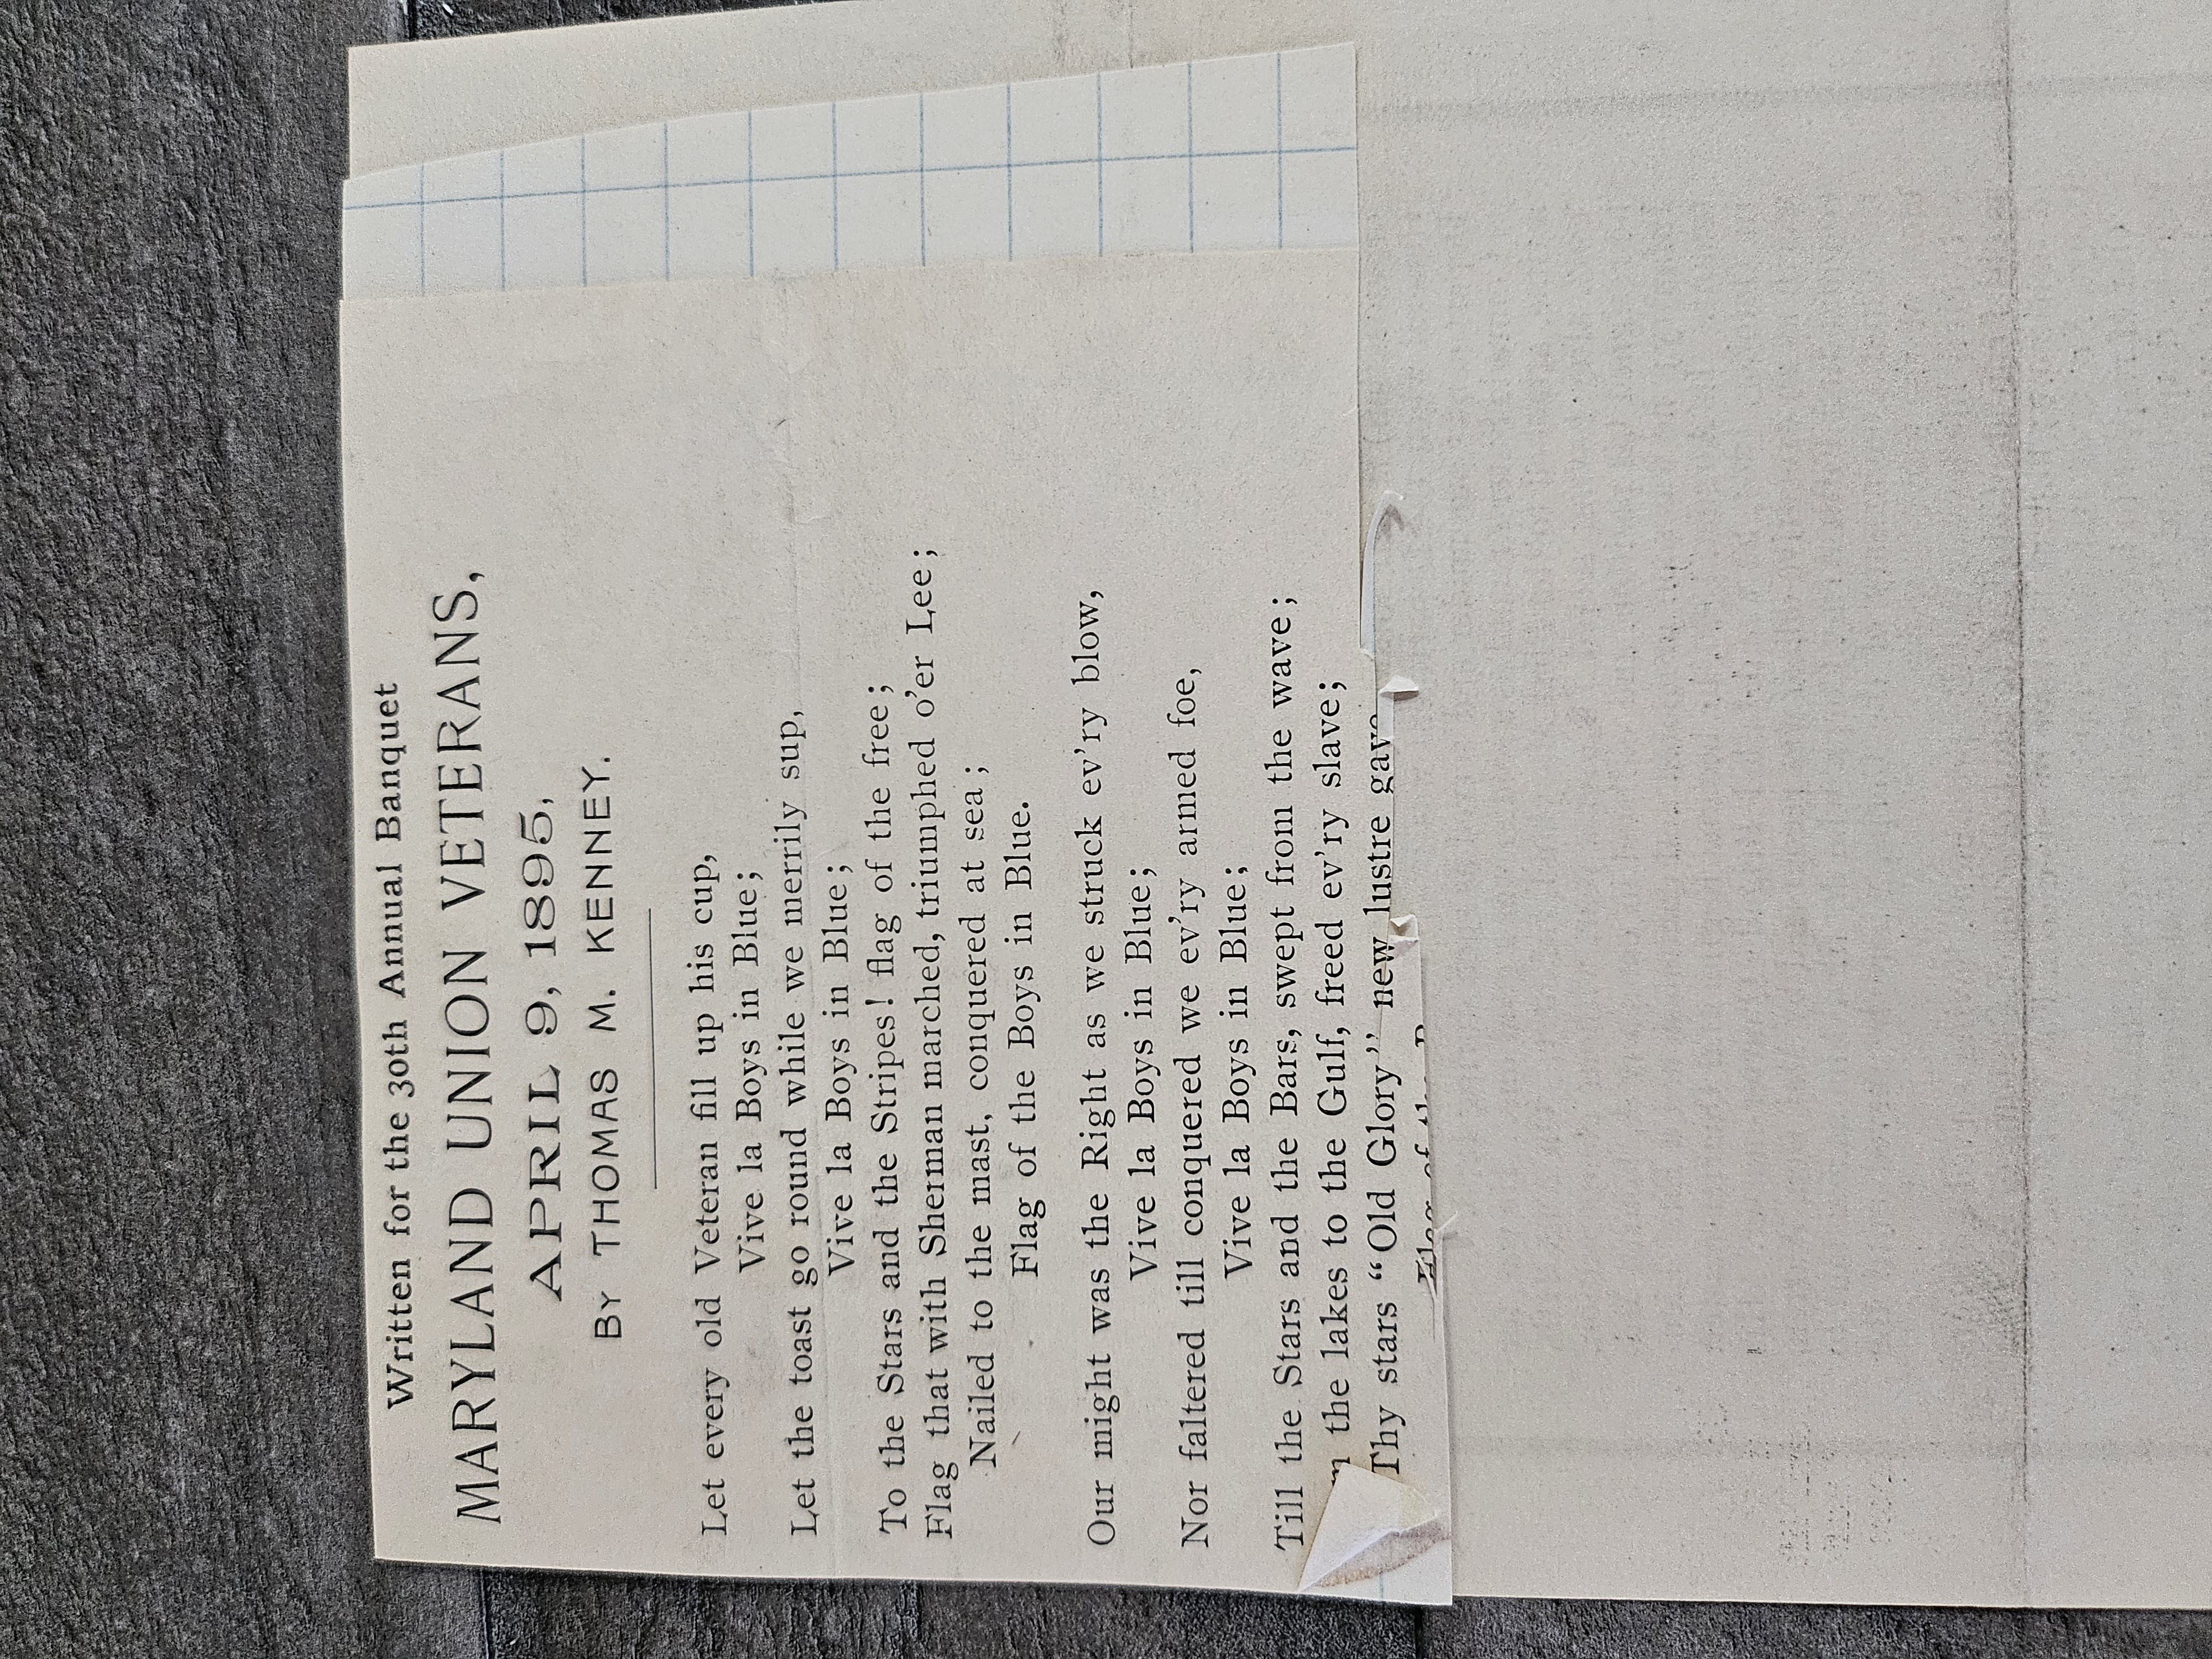 Written for the 30th Annual Banquet
MARYLAND UNION VETERANS,
APRIL 9, 1895,
BY THOMAS M. KENNEY.
Let every old Veteran fill up his cup,
Vive la Boys in Blue;
Let the toast go round while we merrily sup,
Vive la Boys in Blue;
To the Stars and the Stripes! flag of the free;
Flag that with Sherman marched, triumphed o'er Lee;
Nailed to the mast, conquered at sea;
Flag of the Boys in Blue.
Our might was the Right as we struck ev'ry blow,
Vive la Boys in Blue;
Nor faltered till conquered we ev'ry armed foe,
Vive la Boys in Blue;
Till the Stars and the Bars, swept from the wave;
the lakes to the Gulf, freed ev'ry slave;
Thy stars "Old Glory" new lustre gave
Flag of the